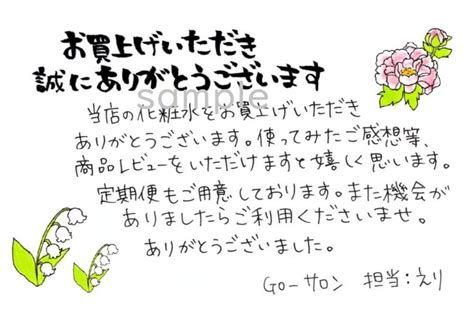 お買上げいただき
誠にありがとうございます
sample
当店の化粧水をお買上げいただき
ありがとうございます。使ってみたご感想等、
商品レビューをいただけますと嬉しく思います。
定期便もご用意しております。また機会が
ありましたらご利用くださいませ。
ありがとうございました。
Go-サロン 担当:えり